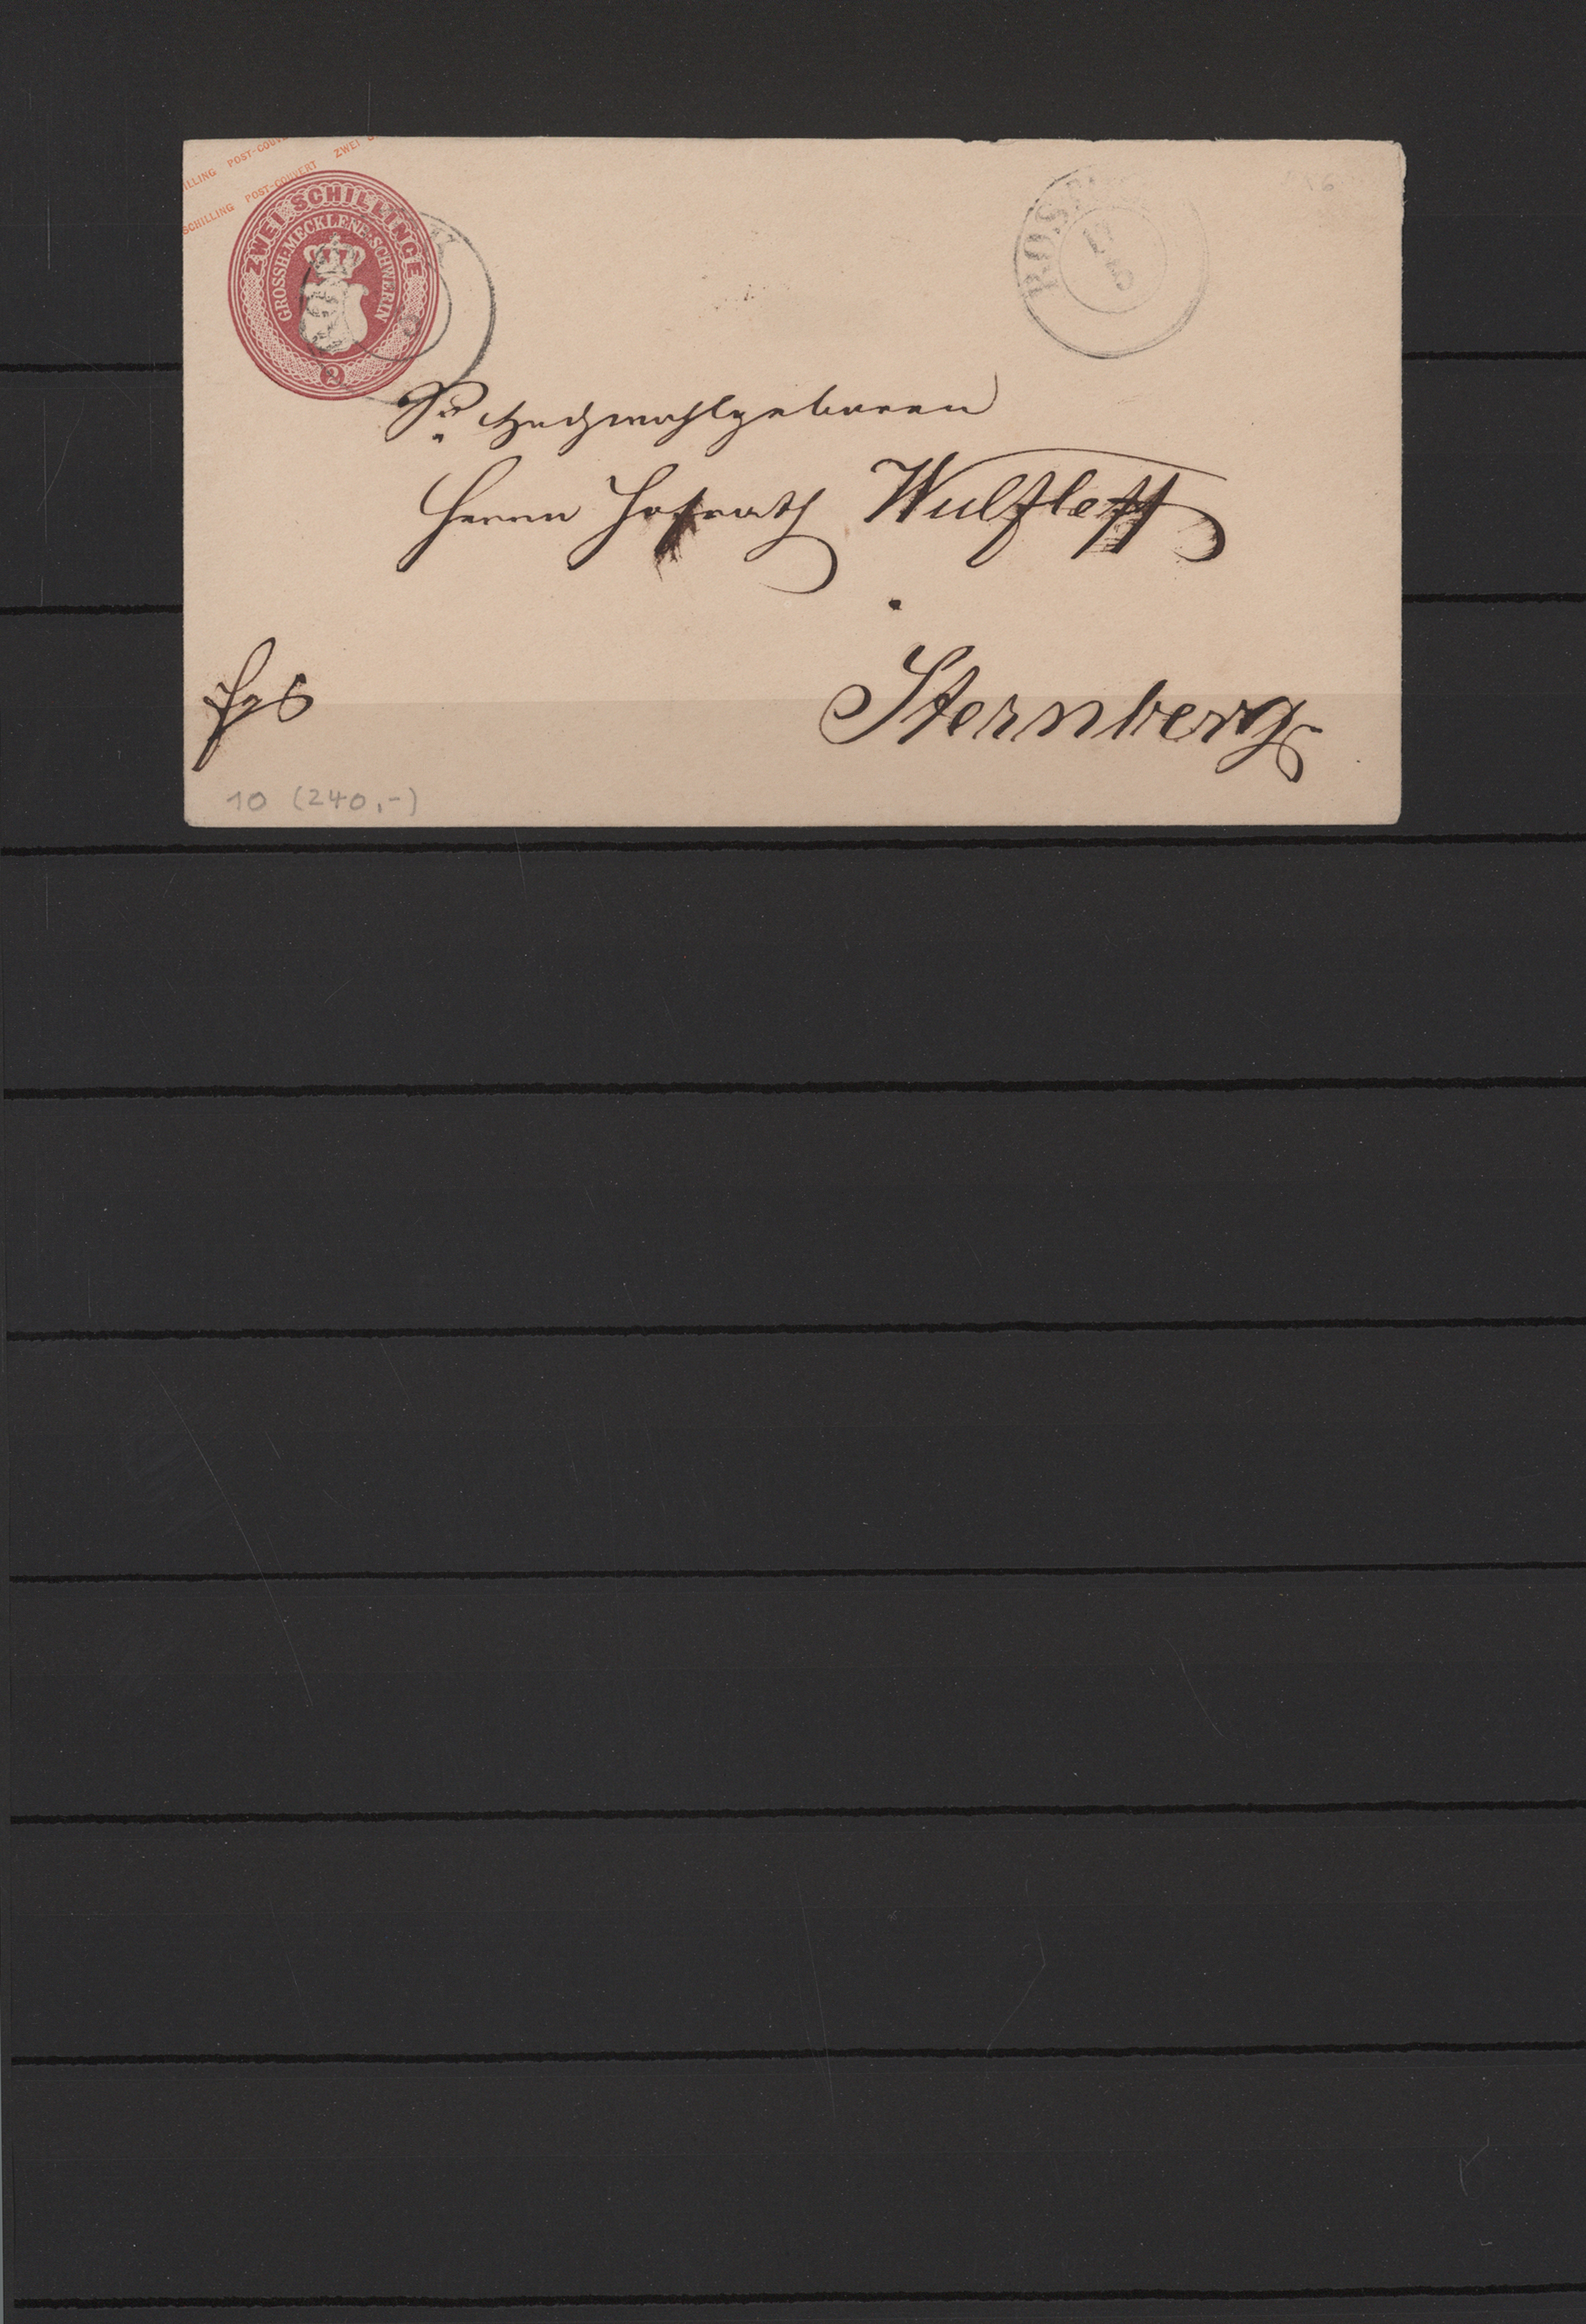 HILLING POST-COUV
SCHILLING POST-COUVERT ZWEI S
ZWEI SCHILLINGE
GROSSH. MECKLENB. SCHWERIN
2
ROS
Sr. Hochwohlgeboren
Herrn Hofrath Wulffleff
Sternberg
10 (240,-)